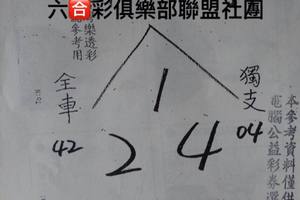 六合彩俱樂部聯盟社團
樂透彩
參考用
全車
獨支
1
42
2
4
04
本參考資料僅供
電腦公益彩券選